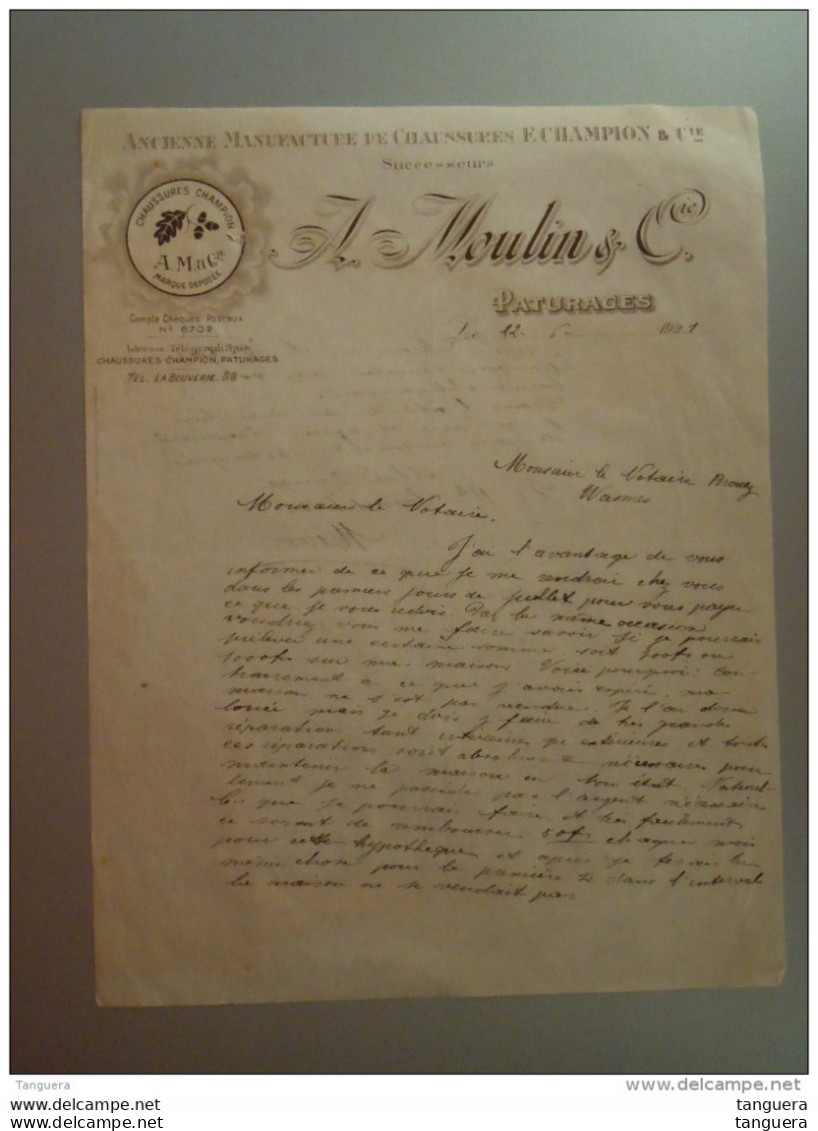 ANCIENNE MANUFACTURE DE CHAUSSURES F. CHAMPION & CIE
Successeurs
A. Moulin & Cie
PATURAGES
CHAUSSURES CHAMPION
A.M.&Cie
MARQUE DEPOSÉE
Compte Chèques Postaux
No 6702
Adresse Télégraphique
CHAUSSURES CHAMPION, PATURAGES
TÉL. LA BOUVERIE. 56
le 12. 6 1921
Monsieur le Notaire
Wasmes
Monsieur le Notaire.
J'ai l'avantage de vous
informer de ce que je me rendrai chez vous
dans les premiers jours de juillet pour vous payer
ce que je vous redois. Par la même occasion
voudriez vous me faire savoir si je pourrais
prélever une certaine somme soit 500fs ou
1000fs sur ma maison. Voici pourquoi: Con-
trairement a ce que j'avais espéré, ma
maison ne s'est pas vendue. Je l'ai donc
louée mais je dois y faire de très grandes
réparations tant interieures que exterieures et toutes
ces réparations sont nécessaires pour
maintenir la maison en bon état. Naturel-
lement je ne possède pas l'argent nécessaire
que je pourrais faire et très facilement
ce serait de rembourser 50fs chaque mois
pour cette hypothèque et après je ferais la
même chose pour la première si dans l'interval
la maison ne se vendait pas
Tanguera
delcampe.net
tanguera
tanguera
tanguera
tanguera